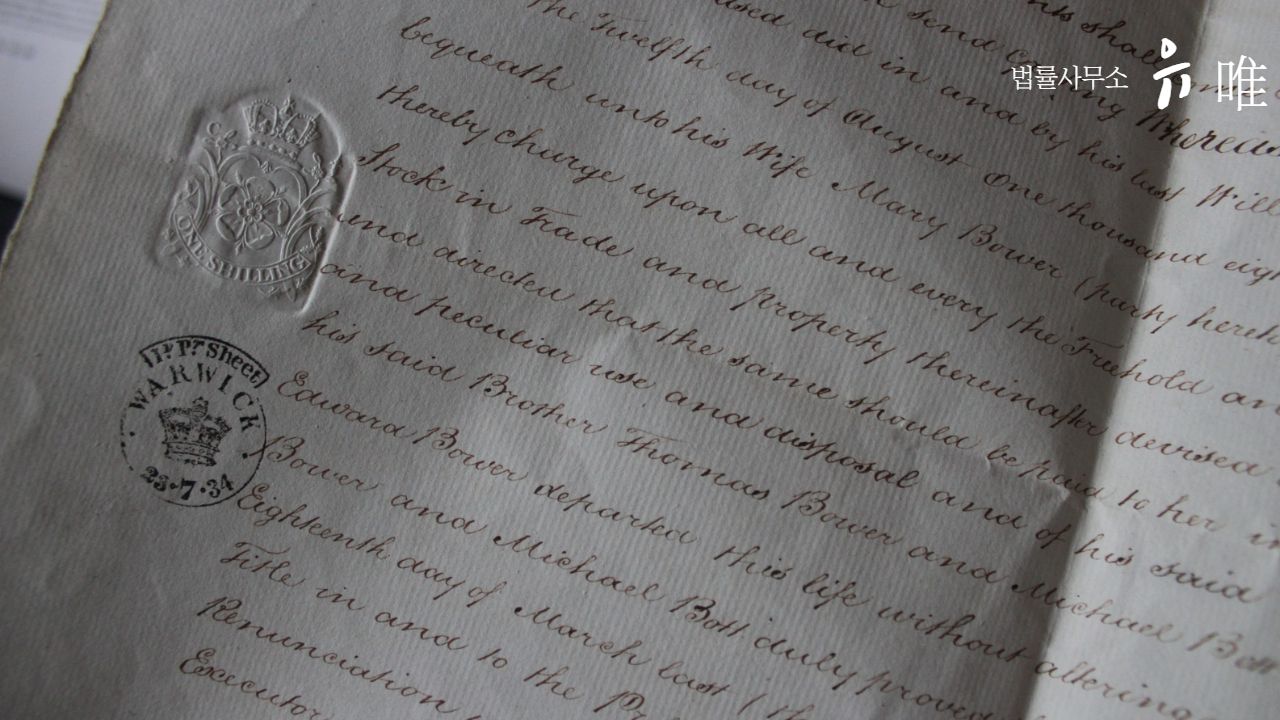 법률사무소 유 唯
ns shall
send
the Twelfth day of August One thousand eigh
did in and by his last Will
bequeath unto his Wife Mary Bower (party hereto
thereby charge upon all and every the Freehold an
Stock in Trade and property thereinafter devised
and directed that the same should be paid to her in
and peculiar use and disposal and of his said
his said Brother Thomas Bower and Michael Bott
Edward Bower departed this life without altering
Bower and Michael Bott duly proved
Eighteenth day of March last (th
Title in and to the Pr
Renunciation
Executor
ONE SHILLING
Sheet
WARWICK
23·7·34